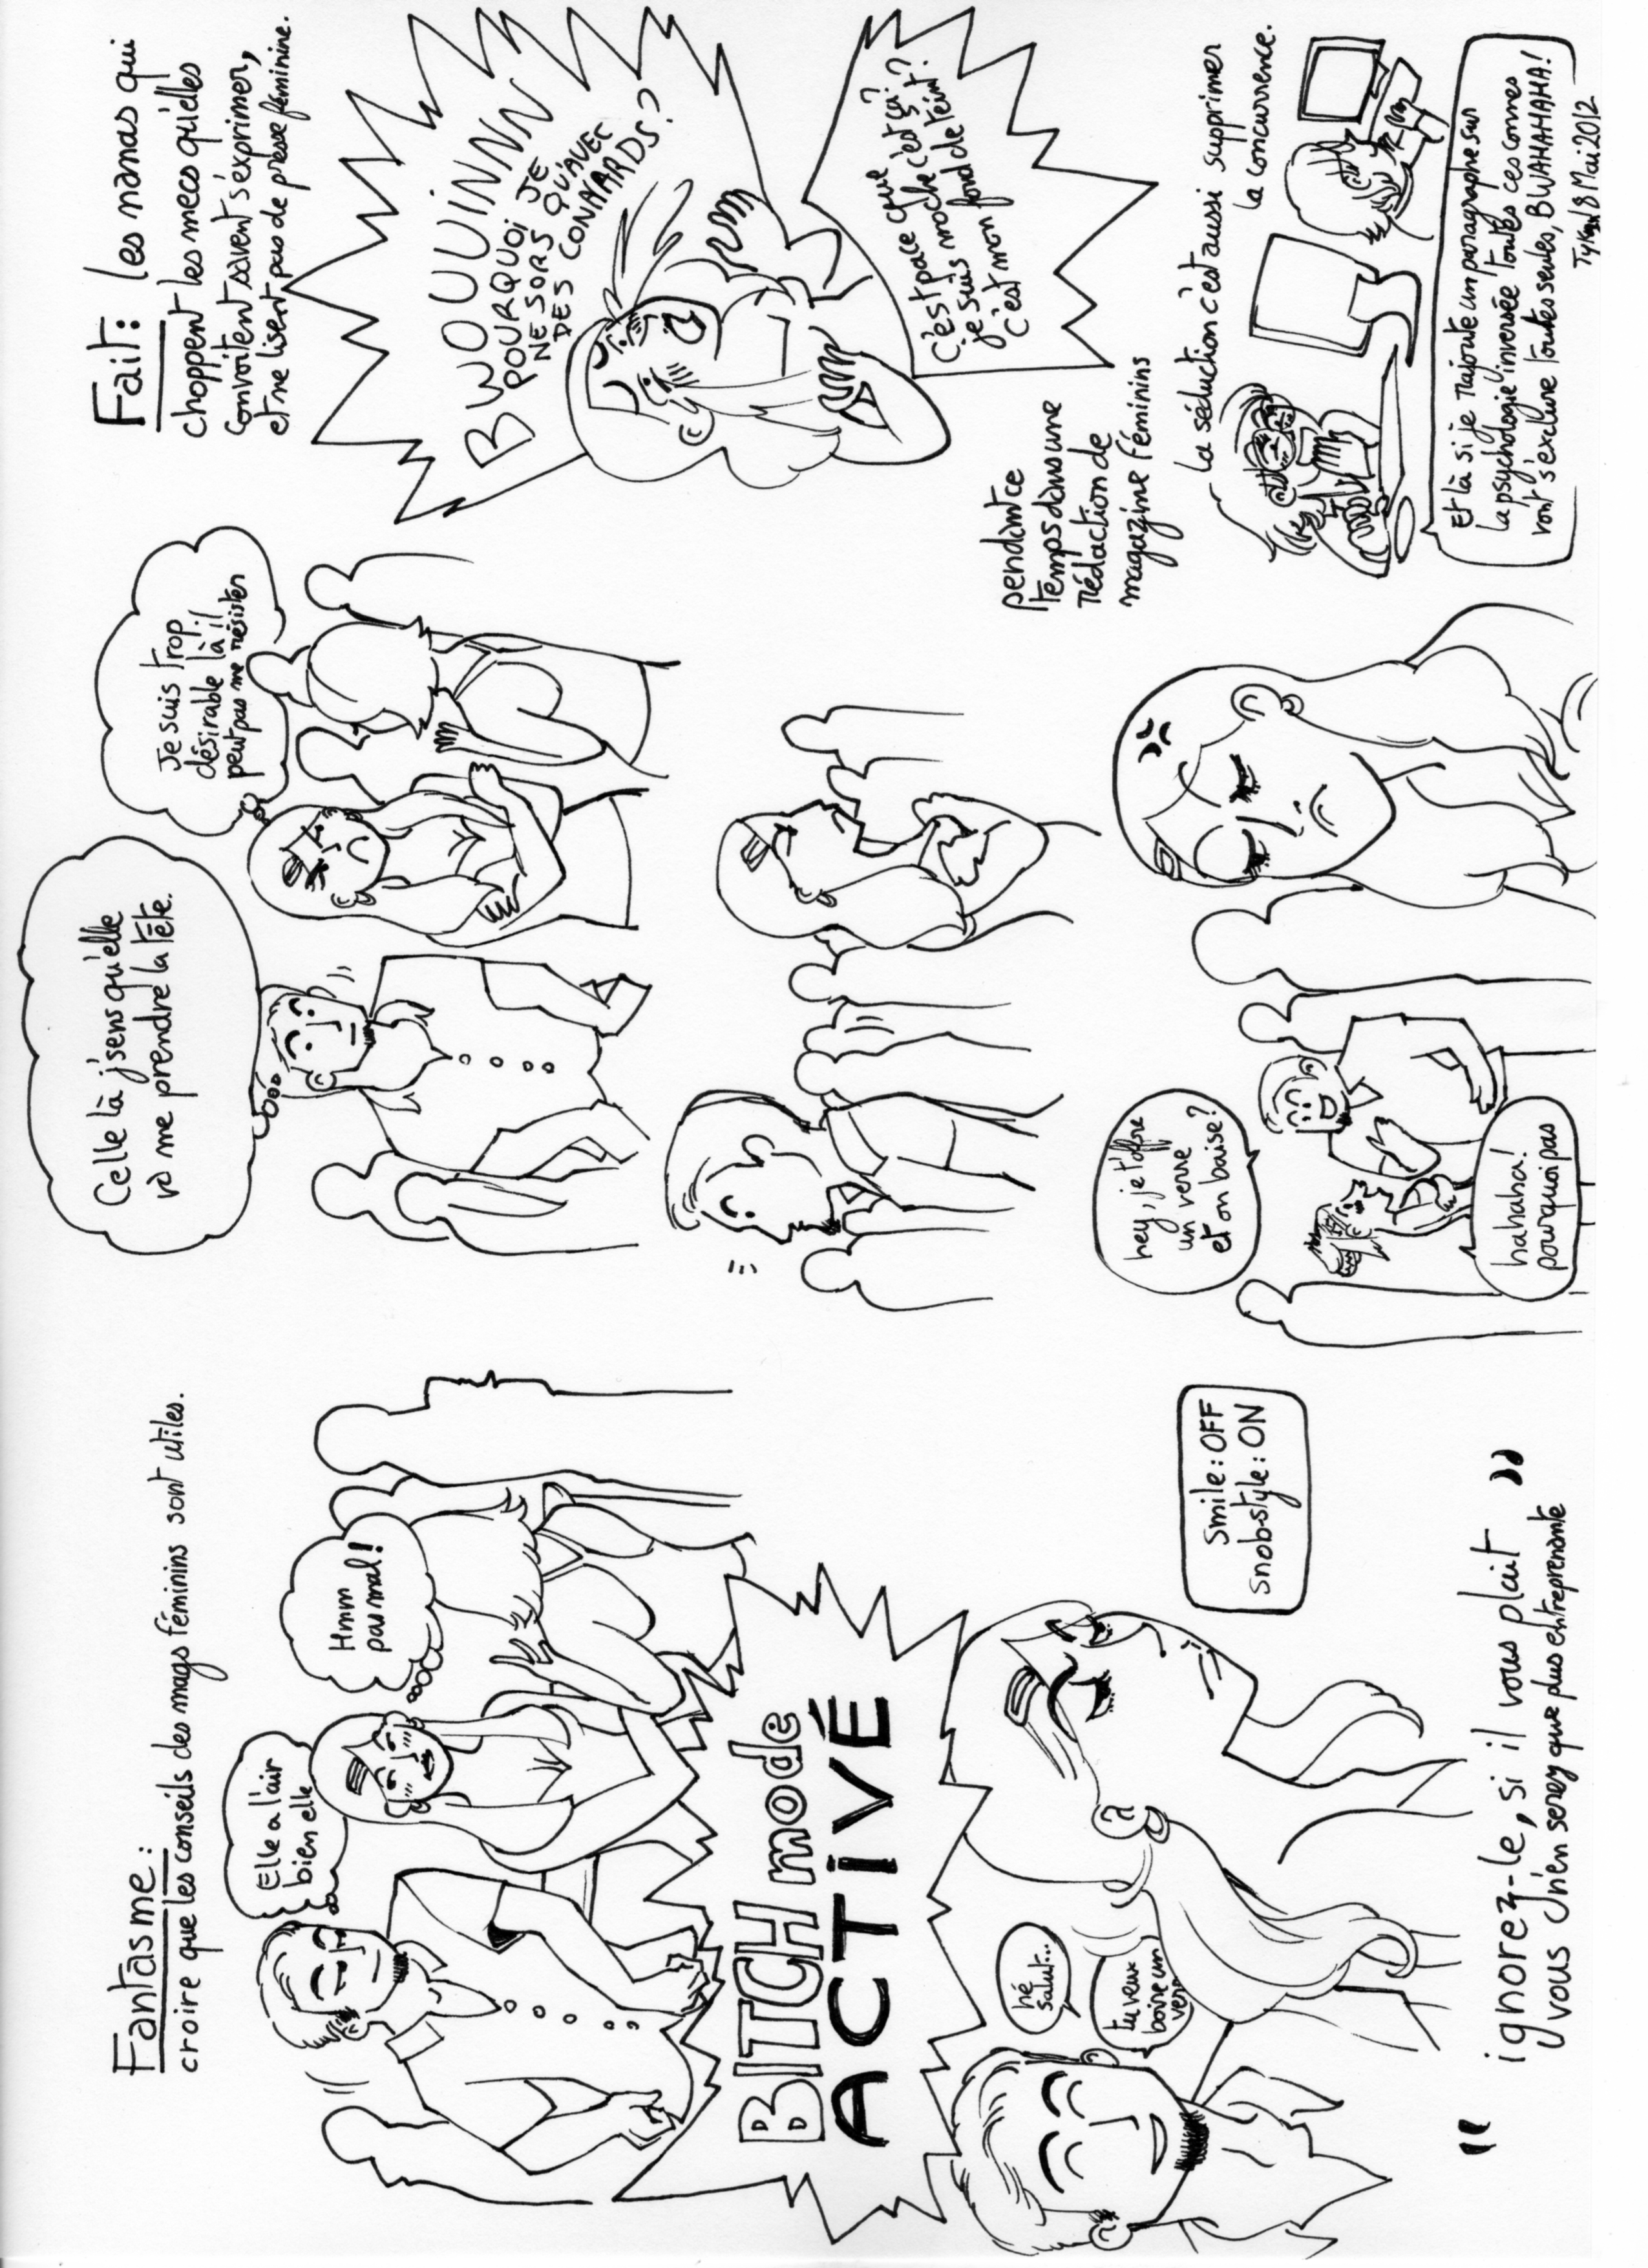 Fantasme:
croire que les conseils des mags féminins sont utiles.
Elle a l'air
bien elle
Hmm
pas mal!
BITCH mode
ACTIVÉ
hé
salut...
tu veux
boire un
verre
Smile: OFF
Snob-style: ON
" ignorez-le, si il vous plait "
vous n'en serez que plus entreprenante
Celle là j'sens qu'elle
va me prendre la tête.
Je suis trop
désirable là il
peut pas me résister
hey, je t'offre
un verre
et on baise?
hahaha!
pourquoi pas
Fait: les nanas qui
choppent les mecs qu'elles
convoitent savent s'exprimer,
et ne lisent pas de presse féminine.
BWOUUUINNN
POURQUOI JE
NE SORS QU'AVEC
DES CONNARDS?
C'est pace que
je suis moche c'est ça?
C'est mon fond de teint?
pendant ce
temps dans une
rédaction de
magazine féminins
la séduction c'est aussi supprimer
la concurrence.
Et là si je rajoute un paragraphe sur
la psychologie inversée toutes ces connes
vont s'exclure toutes seules, BWAHAHAHA!
8 Mai 2012